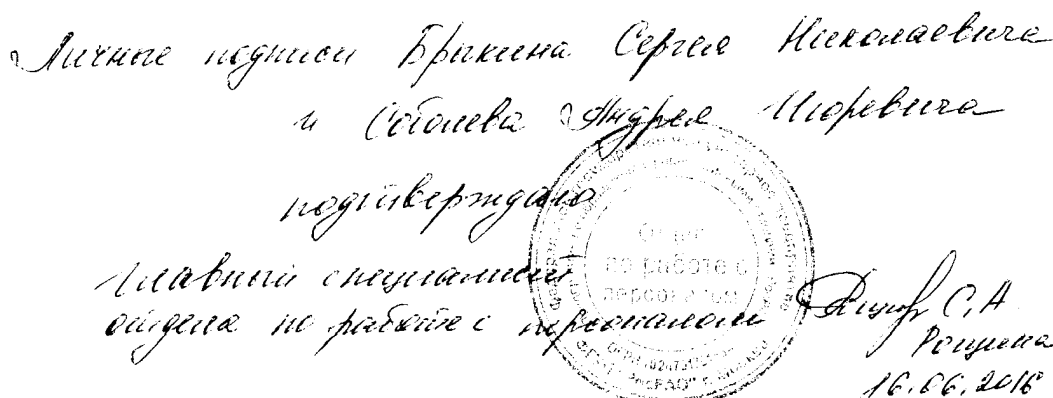 Личные подписи Брыкина Сергея Николаевича
и Соболева Андрея Игоревича
подтверждаю
Главный специалист
отдела по работе с персоналом
Отдел
по работе с
персоналом
С.А.
Рощина
16.06.2016